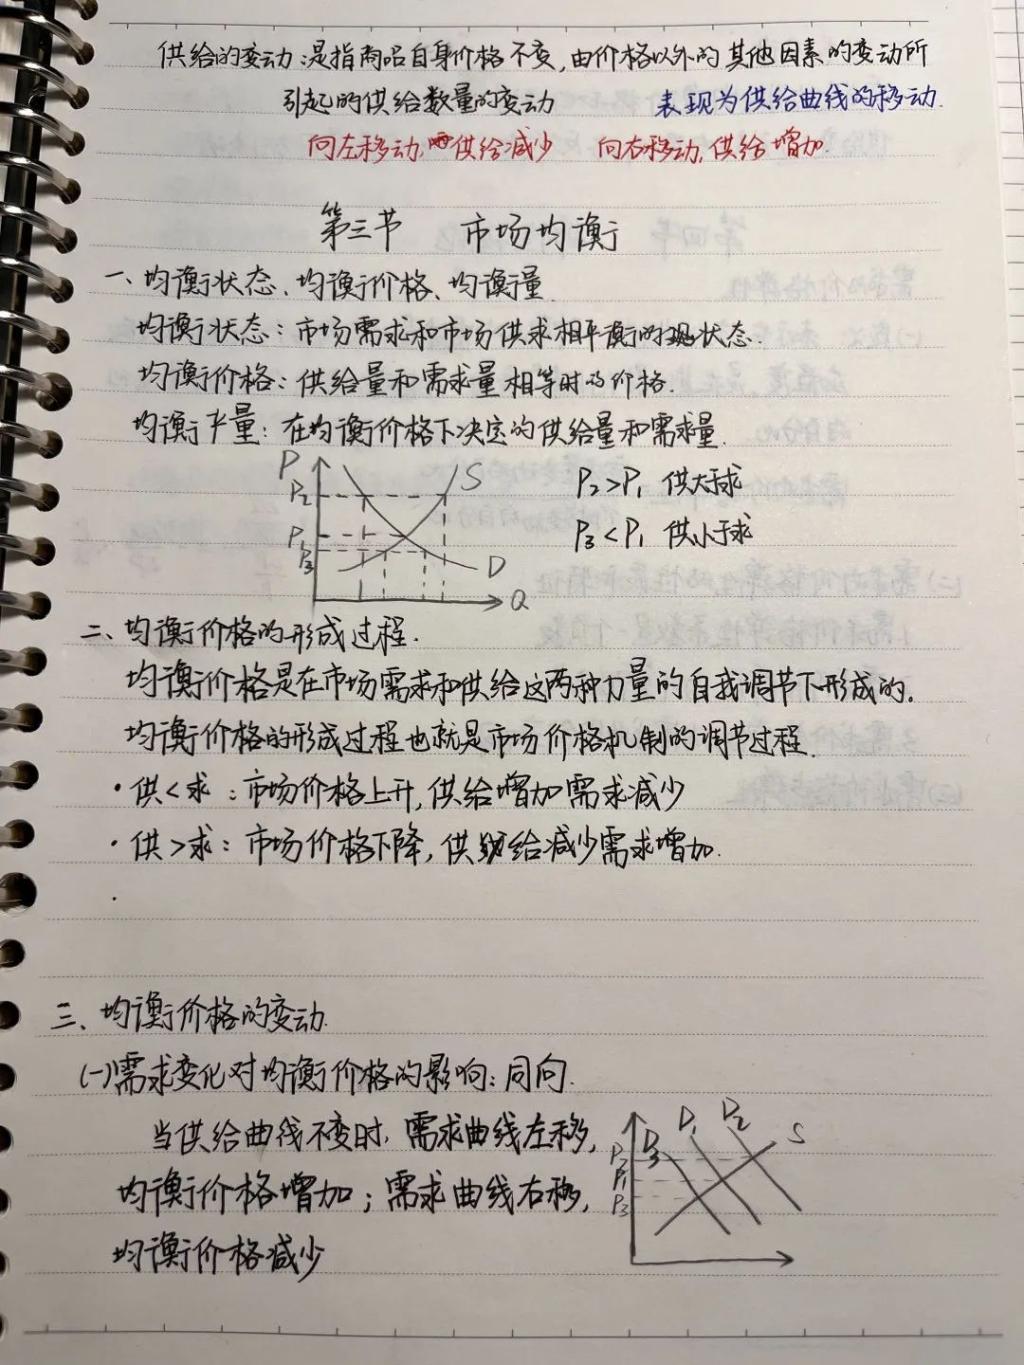 供给的变动:是指商品自身价格不变,由价格以外的其他因素的变动所
引起的供给数量的变动 表现为供给曲线的移动.
向左移动,供给减少 向右移动,供给增加.
第三节 市场均衡
一、均衡状态、均衡价格、均衡量
均衡状态:市场需求和市场供求相平衡的状态.
均衡价格:供给量和需求量相等时的价格.
均衡产量:在均衡价格下决定的供给量和需求量.
P S
P₂ P₂>P₁ 供大于求
P₁ P₃<P₁ 供小于求
P₃ D
Q
二、均衡价格的形成过程.
均衡价格是在市场需求和供给这两种力量的自我调节下形成的.
均衡价格的形成过程也就是市场价格机制的调节过程.
·供<求:市场价格上升,供给增加需求减少
·供>求:市场价格下降,供给减少需求增加.
三、均衡价格的变动.
(一)需求变化对均衡价格的影响:同向.
当供给曲线不变时,需求曲线左移,
均衡价格增加;需求曲线右移,
均衡价格减少
D₃ D₁ D₂ S
P₂
P₁
P₃